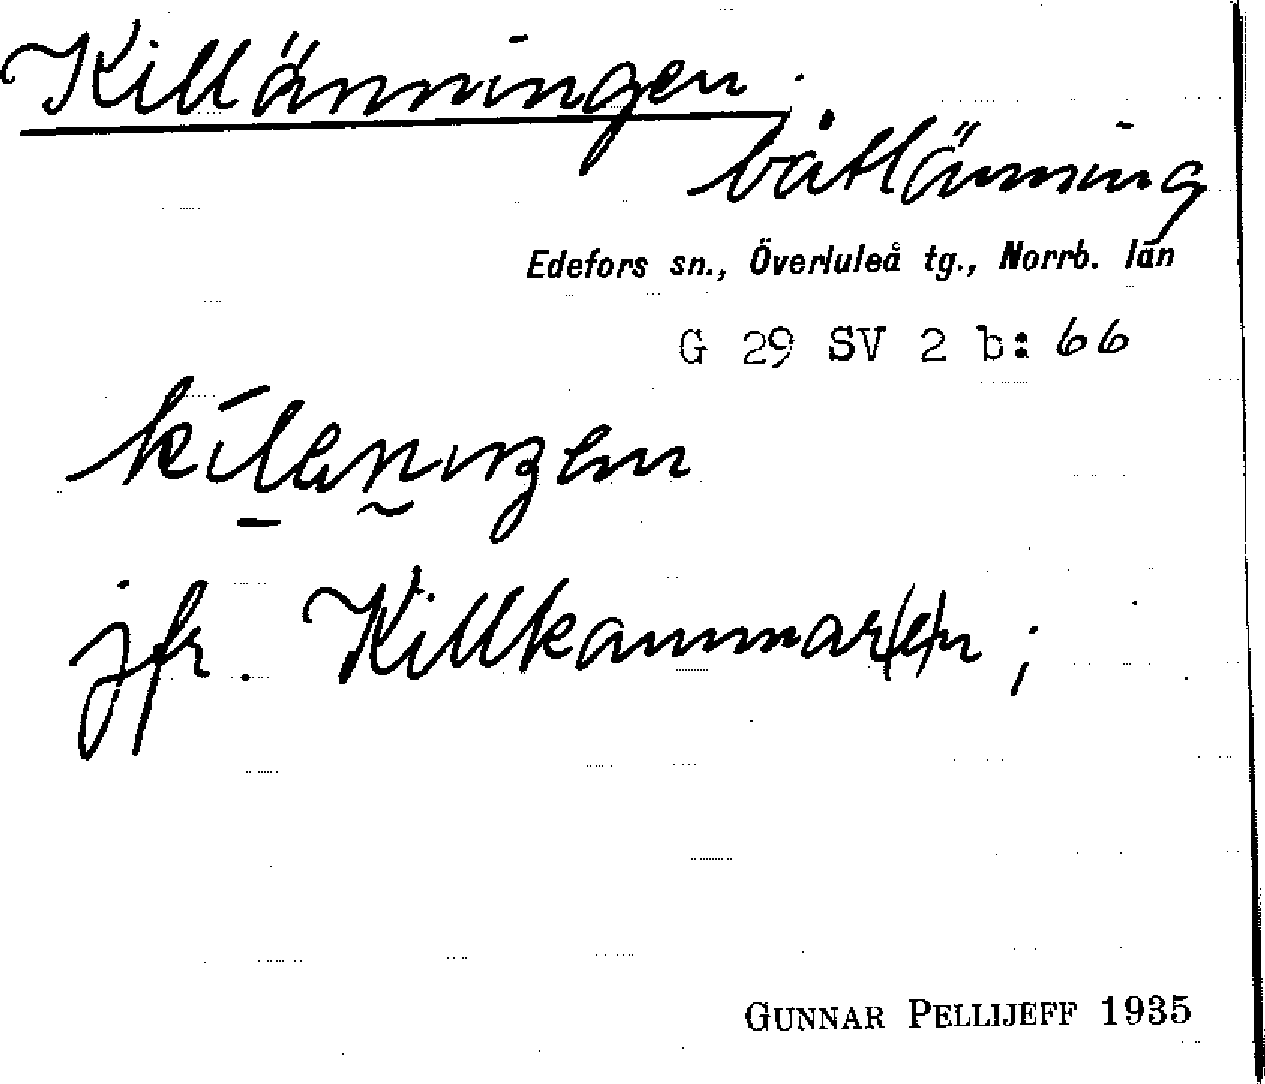 Killänningen.
båtlänning
Edefors sn., Överluleå tg., Norrb. län
G 29 SV 2 b: 66
jfr. Killkammar(e)n ;
GUNNAR PELLIJEFF 1935